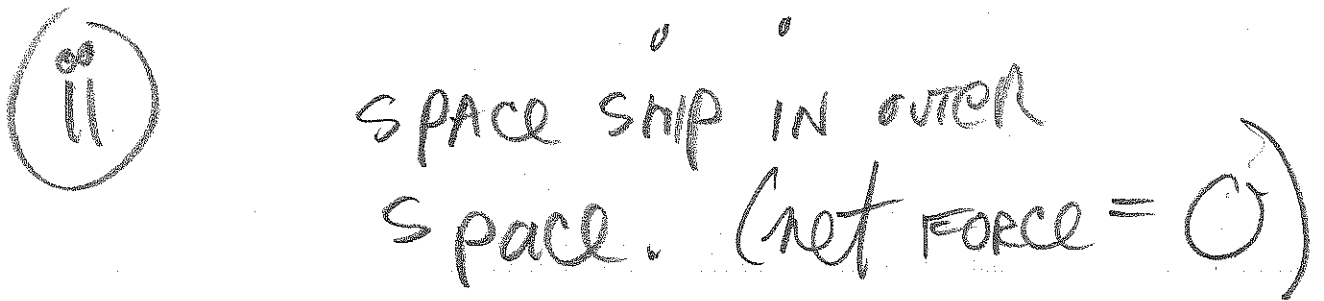 ii SPACE SHIP IN OUTER
Space. (net FORCE = 0)